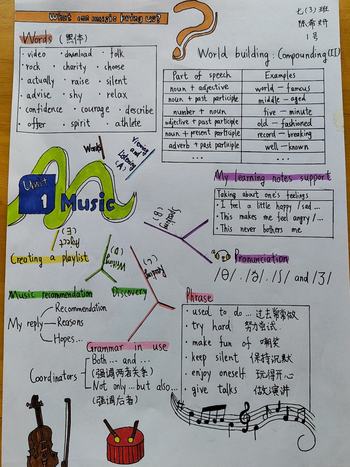 What can music bring us?
七(3)班
陈希妍
1号
Words (黑体)
· video · download · folk
· rock · charity · choose
· actually · raise · silent
· advise · shy · relax
· confidence · courage · describe
· offer · spirit · athlete
World building: Compounding(II)
Part of speech Examples
noun + adjective world — famous
noun + past participle middle — aged
number + noun five — minute
adjective + past participle old — fashioned
noun + present participle record — breaking
adverb + past participle well — known
... ...
Words
Viewing and
Listening
(A)
Unit
1 Music
Speaking
(B)
My learning notes support
Taking about one's feelings
· I feel a little happy / sad ...
· This makes me feel angry / ...
· This never bothers me
Project
(E)
Creating a playlist
Writing
(D)
Reading
Pronunciation
/θ/, /ð/, /ʃ/ and /ʒ/
Music recommendation
Discovery
My reply
Recommendation
Reasons
Hopes...
Phrase
· used to do ... 过去常常做
· try hard 努力尝试
· make fun of 嘲笑
· keep silent 保持沉默
· enjoy oneself 玩得开心
· give talks 做演讲
Grammar in use
Coordinators
Both ... and ...
(强调两者关系)
Not only ... but also...
(强调后者)